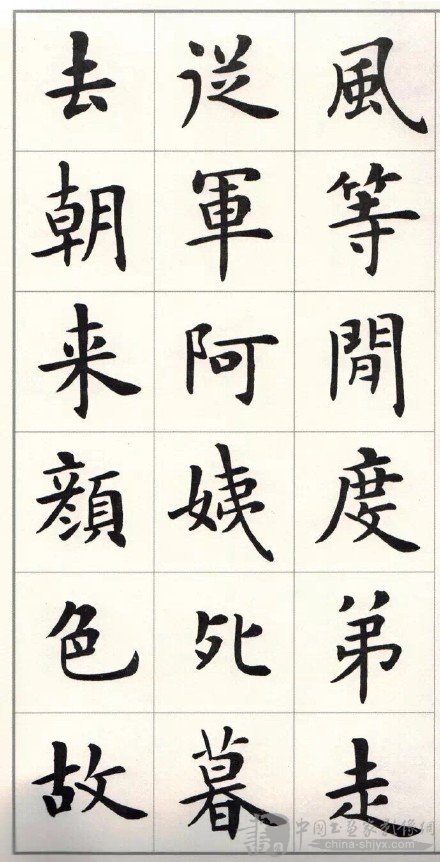 風等閒度弟走
從軍阿姨死暮
去朝来顔色故
中国书画家就像网
china-shjyx.com